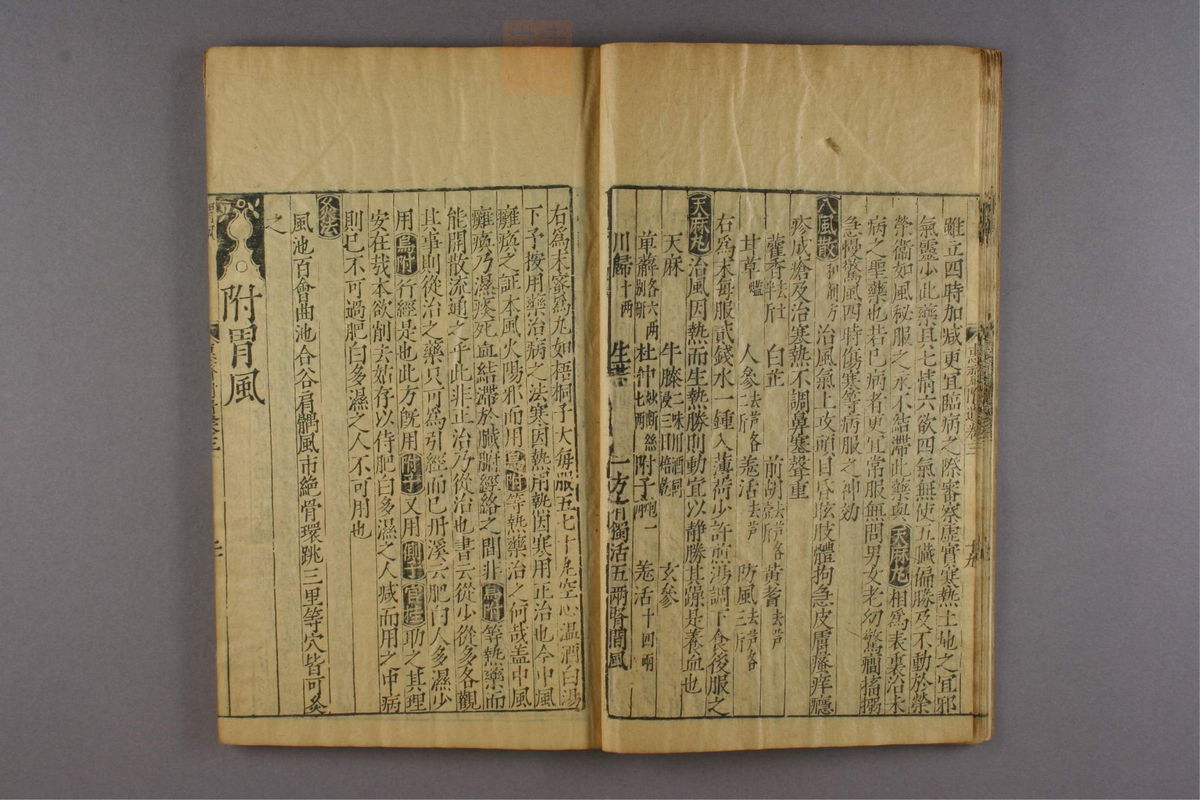 雖立四時加减更宜臨病之際審察虛實寒熱土地之宜邪
氣靈少此藥具七情六欲四氣無使五臟偏勝及不動於榮
榮衛如風秘服之永不結滯此藥與天麻丸相爲表裏治未
病之聖藥也若已病者更宜常服無問男女老幼驚癎搐搦
急慢驚風四時傷寒等病服之神効
八風散 治風氣上攻頭目昏眩肢體拘急皮膚瘙痒癮
疹成瘡及治寒熱不調鼻塞聲重
藿香去土半斤 白芷 前胡去芦各一斤 黃蓍去芦
甘草 人參去芦各二斤 羌活去芦 防風去芦各三斤
右爲末每服貳錢水一鍾入薄荷少許煎湯調下食後服之
天麻丸治風因熱而生熱勝則動宜以静勝其躁是養血也
天麻 牛膝二味用酒同浸三日焙乾 玄參
萆薢各六兩 杜仲七兩 附子炮一兩 羌活十四兩
川歸十兩 生 一方有獨活五兩腎間風
右爲末蜜爲丸如梧桐子大每服五七十丸空心温酒白湯
下予按用藥治病之法寒因熱用熱因寒用正治也今中風
癱瘓之証本風火陽邪而用烏附等熱藥治之何哉盖中風
癱瘓乃濕痰死血結滯於臟腑經絡之間非烏附等熱藥而
能開散流通之乎此非正治乃從治也書云從少從多各觀
其事則從治之藥只可爲引經而已丹溪云肥白人多濕少
用烏附行經是也此方旣用附子又用側子官桂助之其理
安在哉本欲削去姑存以待肥白多濕之人减而用之中病
則已不可過肥白多濕之人不可用也
灸法
風池百會曲池合谷肩髃風市絶骨環跳三里等穴皆可灸
之
附胃風